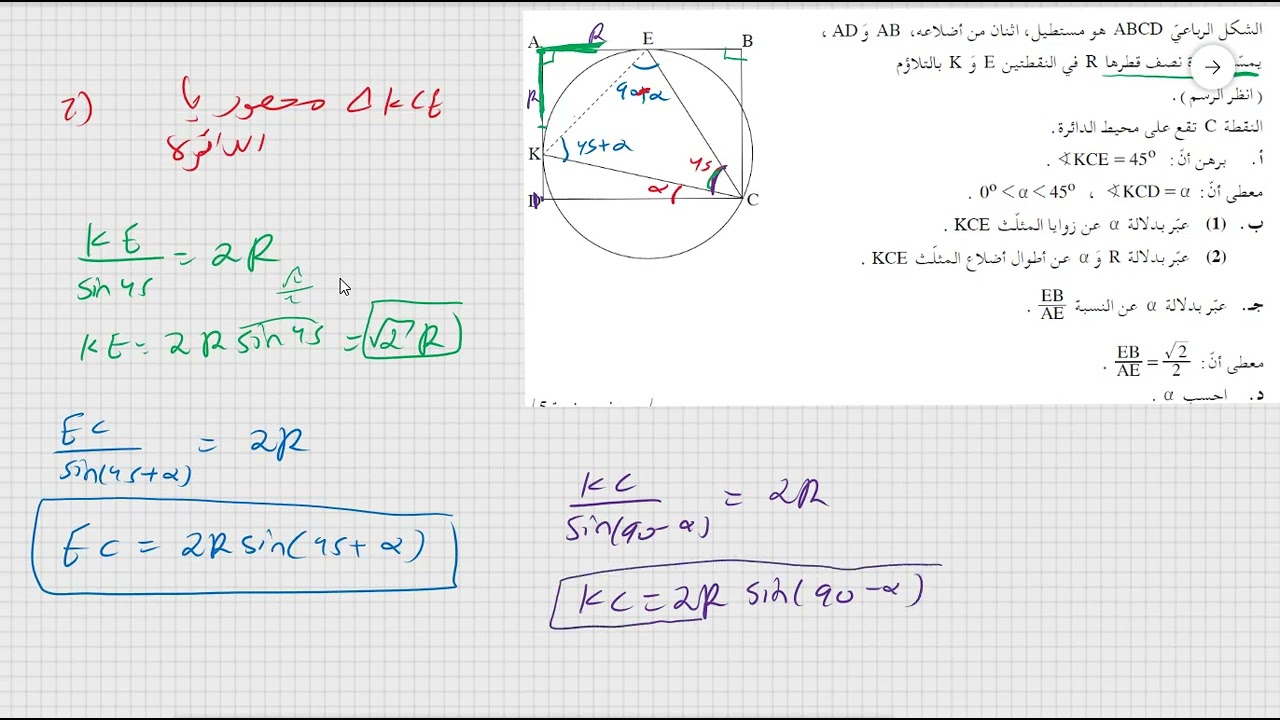 الشكل الرباعيّ ABCD هو مستطيل، اثنان من أضلاعه، AB وَ AD ،
نصف قطرها R في النقطتين E وَ K بالتلاؤم
( انظر الرسم ) .
النقطة C تقع على محيط الدائرة.
أ. برهن أنّ: ∢KCE = 45° .
معطى أنّ: ∢KCD = α ، 0° < α < 45° .
ب. (1) عبّر بدلالة α عن زوايا المثلّث KCE .
(2) عبّر بدلالة R وَ α عن أطوال أضلاع المثلّث KCE .
جـ. عبّر بدلالة α عن النسبة EB/AE .
معطى أنّ: EB/AE = √2/2 .
د. احسب α .
A R E B
R
90-α
K 45+α
45
α
D C
2) ΔKCE محصور با
الدائرة
KE/sin 45 = 2R
√2/2
KE = 2R sin 45 = √2 R
EC/sin(45+α) = 2R
EC = 2R sin(45+α)
KC/sin(90-α) = 2R
KC = 2R sin(90-α)